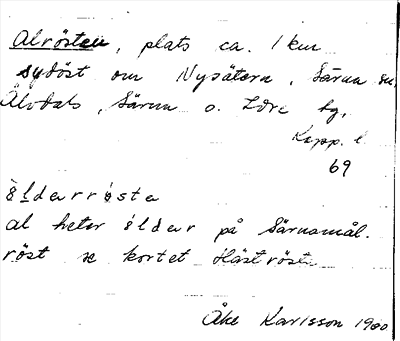 Alrösten, plats ca. 1 km
sydöst om Nysätern, Särna sn,
Älvdals, Särna o. Idre tg,
Kopp. l.
69
ö̀lderrö̀sta
al heter ö̀lder på Särnamål.
röst se kortet Häströsten
Åke Karlsson 1980